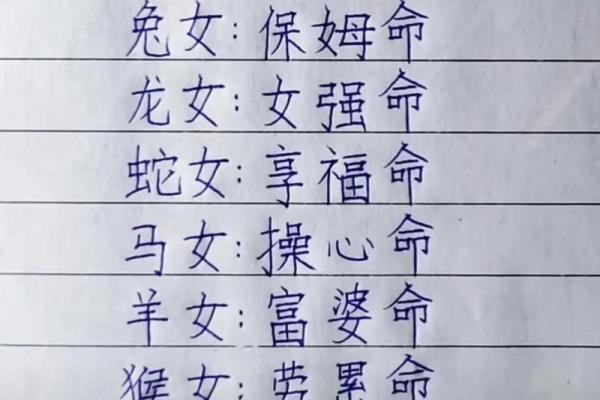 兔女:保姆命
龙女:女强命
蛇女:享福命
马女:操心命
羊女:富婆命
猴女:劳累命